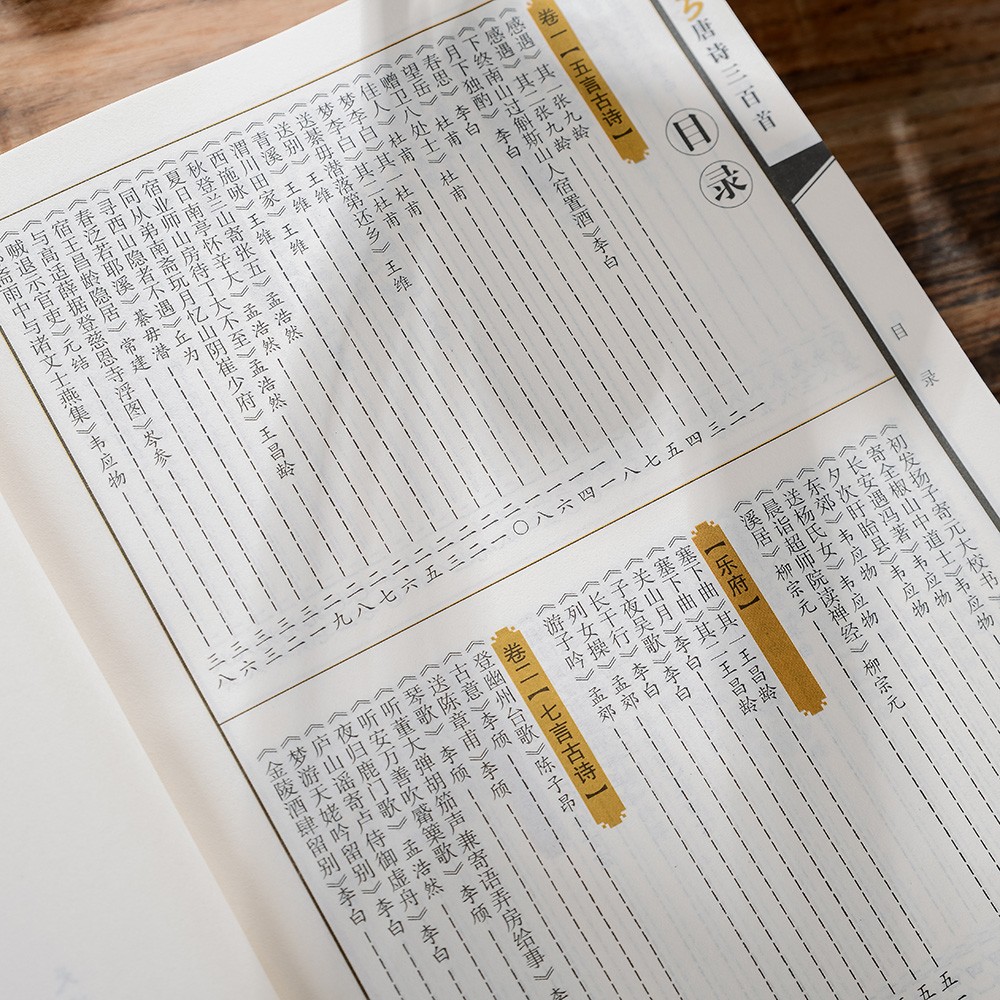 唐诗三百首
目录
目录
卷一【五言古诗】
《感遇》其一 张九龄 一
《感遇》其二 张九龄 二
《下终南山过斛斯山人宿置酒》李白 三
《月下独酌》李白 四
《春思》李白 五
《望岳》杜甫 七
《赠卫八处士》杜甫 八
《佳人》杜甫 一一
《梦李白》其一 杜甫 一四
《梦李白》其二 杜甫 一六
《送綦毋潜落第还乡》王维 一八
《送别》王维 二〇
《青溪》王维 二一
《渭川田家》王维 二二
《西施咏》王维 二三
《秋登兰山寄张五》孟浩然 二五
《夏日南亭怀辛大》孟浩然 二六
《宿业师山房待丁大不至》孟浩然 二七
《同从弟南斋玩月忆山阴崔少府》王昌龄 二八
《寻西山隐者不遇》丘为 二九
《春泛若耶溪》綦毋潜 三一
《宿王昌龄隐居》常建 三二
《与高适薛据登慈恩寺浮图》岑参 三三
《贼退示官吏》元结 三六
斋雨中与诸文士燕集》韦应物 三八
《初发扬子寄元大校书》韦应物
《寄全椒山中道士》韦应物
《长安遇冯著》韦应物
《夕次盱眙县》韦应物
《东郊》韦应物
《送杨氏女》韦应物
《晨诣超师院读禅经》柳宗元
《溪居》柳宗元
【乐府】
《塞下曲》其一 王昌龄
《塞下曲》其二 王昌龄
《关山月》李白
《子夜吴歌》李白
《长干行》李白
《列女操》孟郊
《游子吟》孟郊
卷二【七言古诗】
《登幽州台歌》陈子昂
《古意》李颀
《送陈章甫》李颀
《琴歌》李颀
《听董大弹胡笳声兼寄语弄房给事》李
《听安万善吹觱篥歌》李颀
《夜归鹿门歌》孟浩然
《庐山谣寄卢侍御虚舟》李白
《梦游天姥吟留别》李白
《金陵酒肆留别》李白